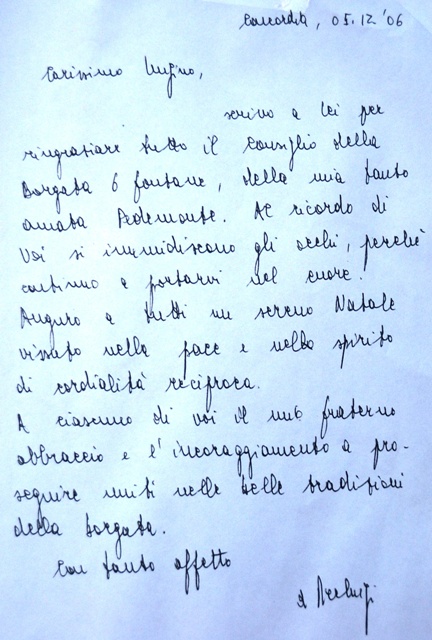 Concordia, 05.12.'06
Carissimo Luigino,
scrivo a lei per
ringraziare tutto il Consiglio della
Borgata 6 fontane, della mia tanto
amata Pedemonte. Al ricordo di
Voi si inumidiscono gli occhi, perché
continuo a portarvi nel cuore!
Auguro a tutti un sereno Natale
vissuto nella pace e nello spirito
di cordialità reciproca.
A ciascuno di voi il mio fraterno
abbraccio e l'incoraggiamento a pro-
seguire uniti nelle belle tradizioni
della Borgata.
Con tanto affetto
d Pierluigi